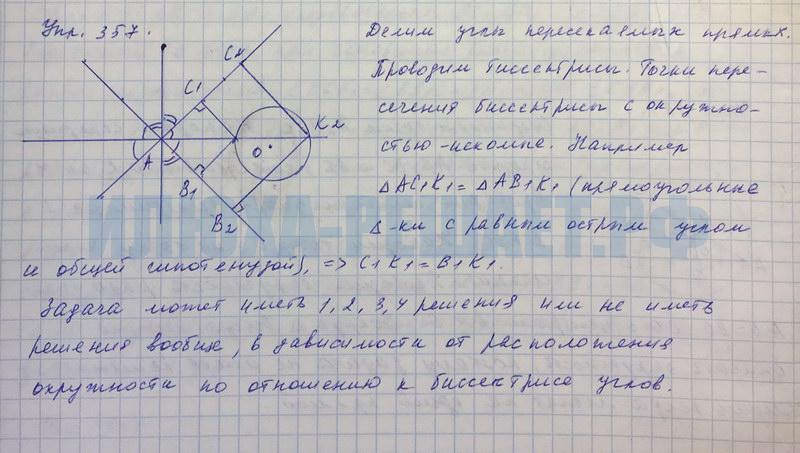 Упр. 357.
Делим углы пересекаемых прямых.
Проводим биссектрисы. Точки пере-
сечения биссектрисы с окружно-
стью - искомые. Например
△AC1K1 = △AB1K1 (прямоугольные
△-ки с равным острым углом
и общей гипотенузой), => C1K1 = B1K1.
Задача может иметь 1, 2, 3, 4 решения или не иметь
решения вообще, в зависимости от расположения
окружности по отношению к биссектрисе углов.
C2
C1
K2
A
O
B1
B2
ИЛЮХА-РЕШАЕТ.РФ